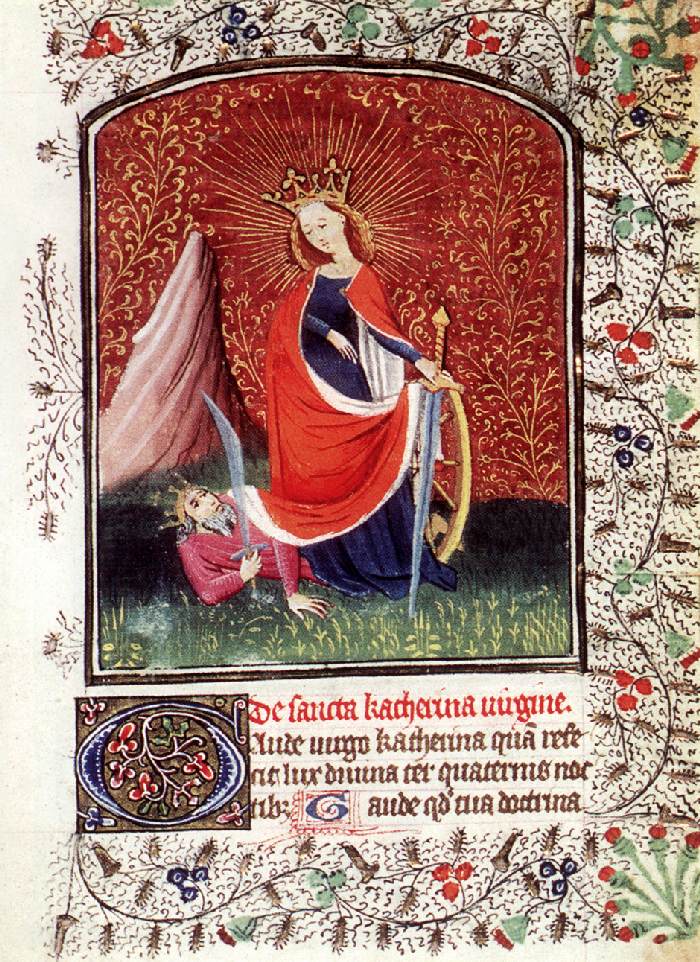 De sancta katherina uirgine.
Gaude uirgo katherina quã refe
cit lux diuina ter quaternis noc
tibꝫ Gaude qd̕ tua doctrina